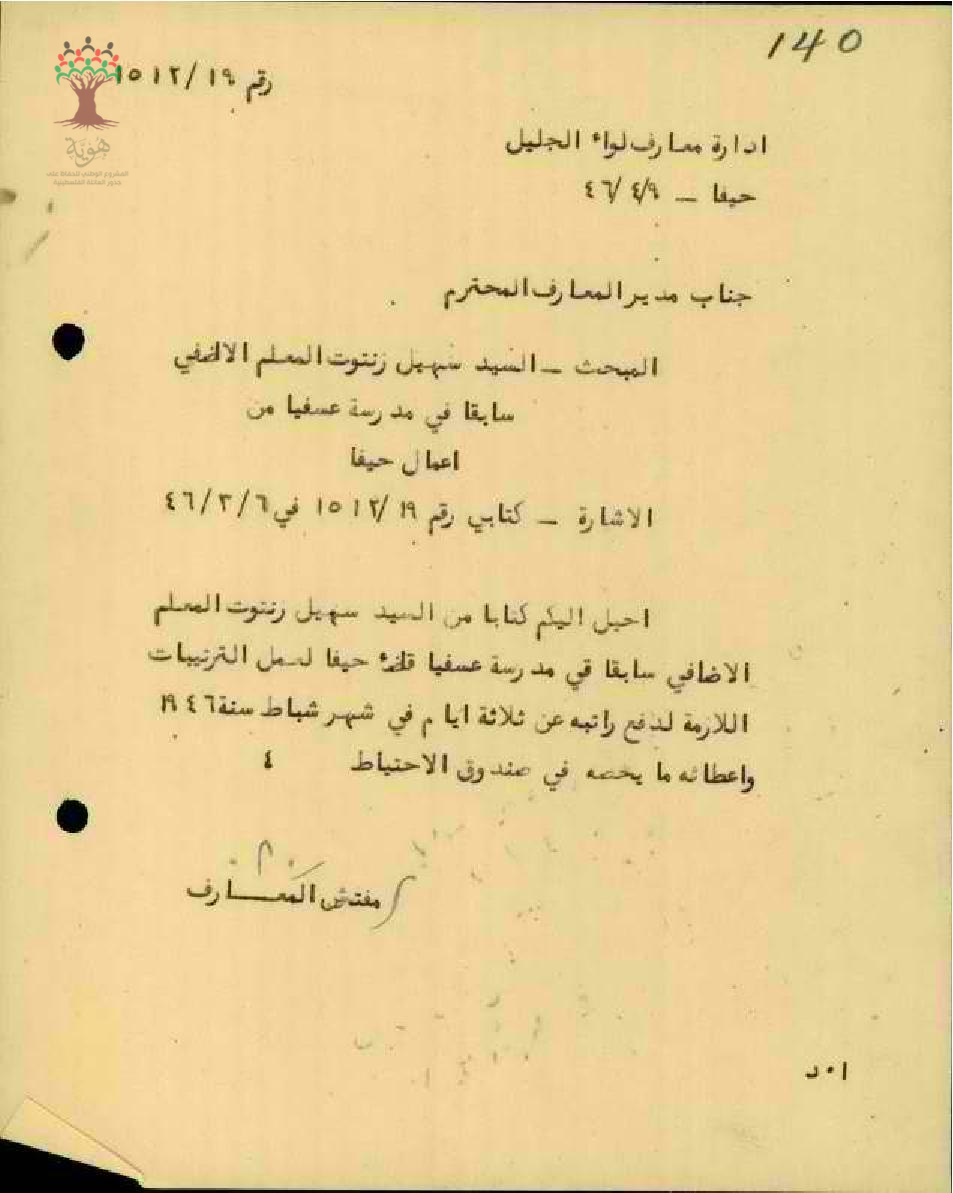 140
رقم ١٩/١٥١٢
هُويَّة
المشروع الوطني للحفاظ على
جذور العائلة الفلسطينية
ادارة معارف لواء الجليل
حيفا – ٤٦/٤/٩
جناب مدير المعارف المحترم
المبحث – السيد سهيل زنتوت المعلم الاضافي
سابقا في مدرسة عسفيا من
اعمال حيفا
الاشارة – كتابي رقم ١٩/١٥١٢ في ٤٦/٣/٦
احيل اليكم كتابا من السيد سهيل زنتوت المعلم
الاضافي سابقا في مدرسة عسفيا قضاء حيفا لعمل الترتيبات
اللازمة لدفع راتبه عن ثلاثة ايام في شهر شباط سنة ١٩٤٦
واعطائه ما يخصه في صندوق الاحتياط ٤
مفتش المعـــارف
ا٠د